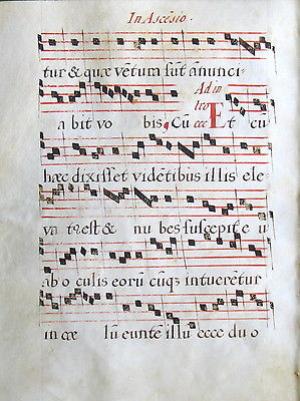 In Ascēsio.
tur & quæ vētura sūt añunci-
Ad in
tro
a bit vo bis, Cū Et cū
hæc dixisset vidētibus illis ele-
va t9 est & nu bes suscepit e u
ab o culis eorū cūq3 intuerētur
in cæ lū euntē illū ecce du o